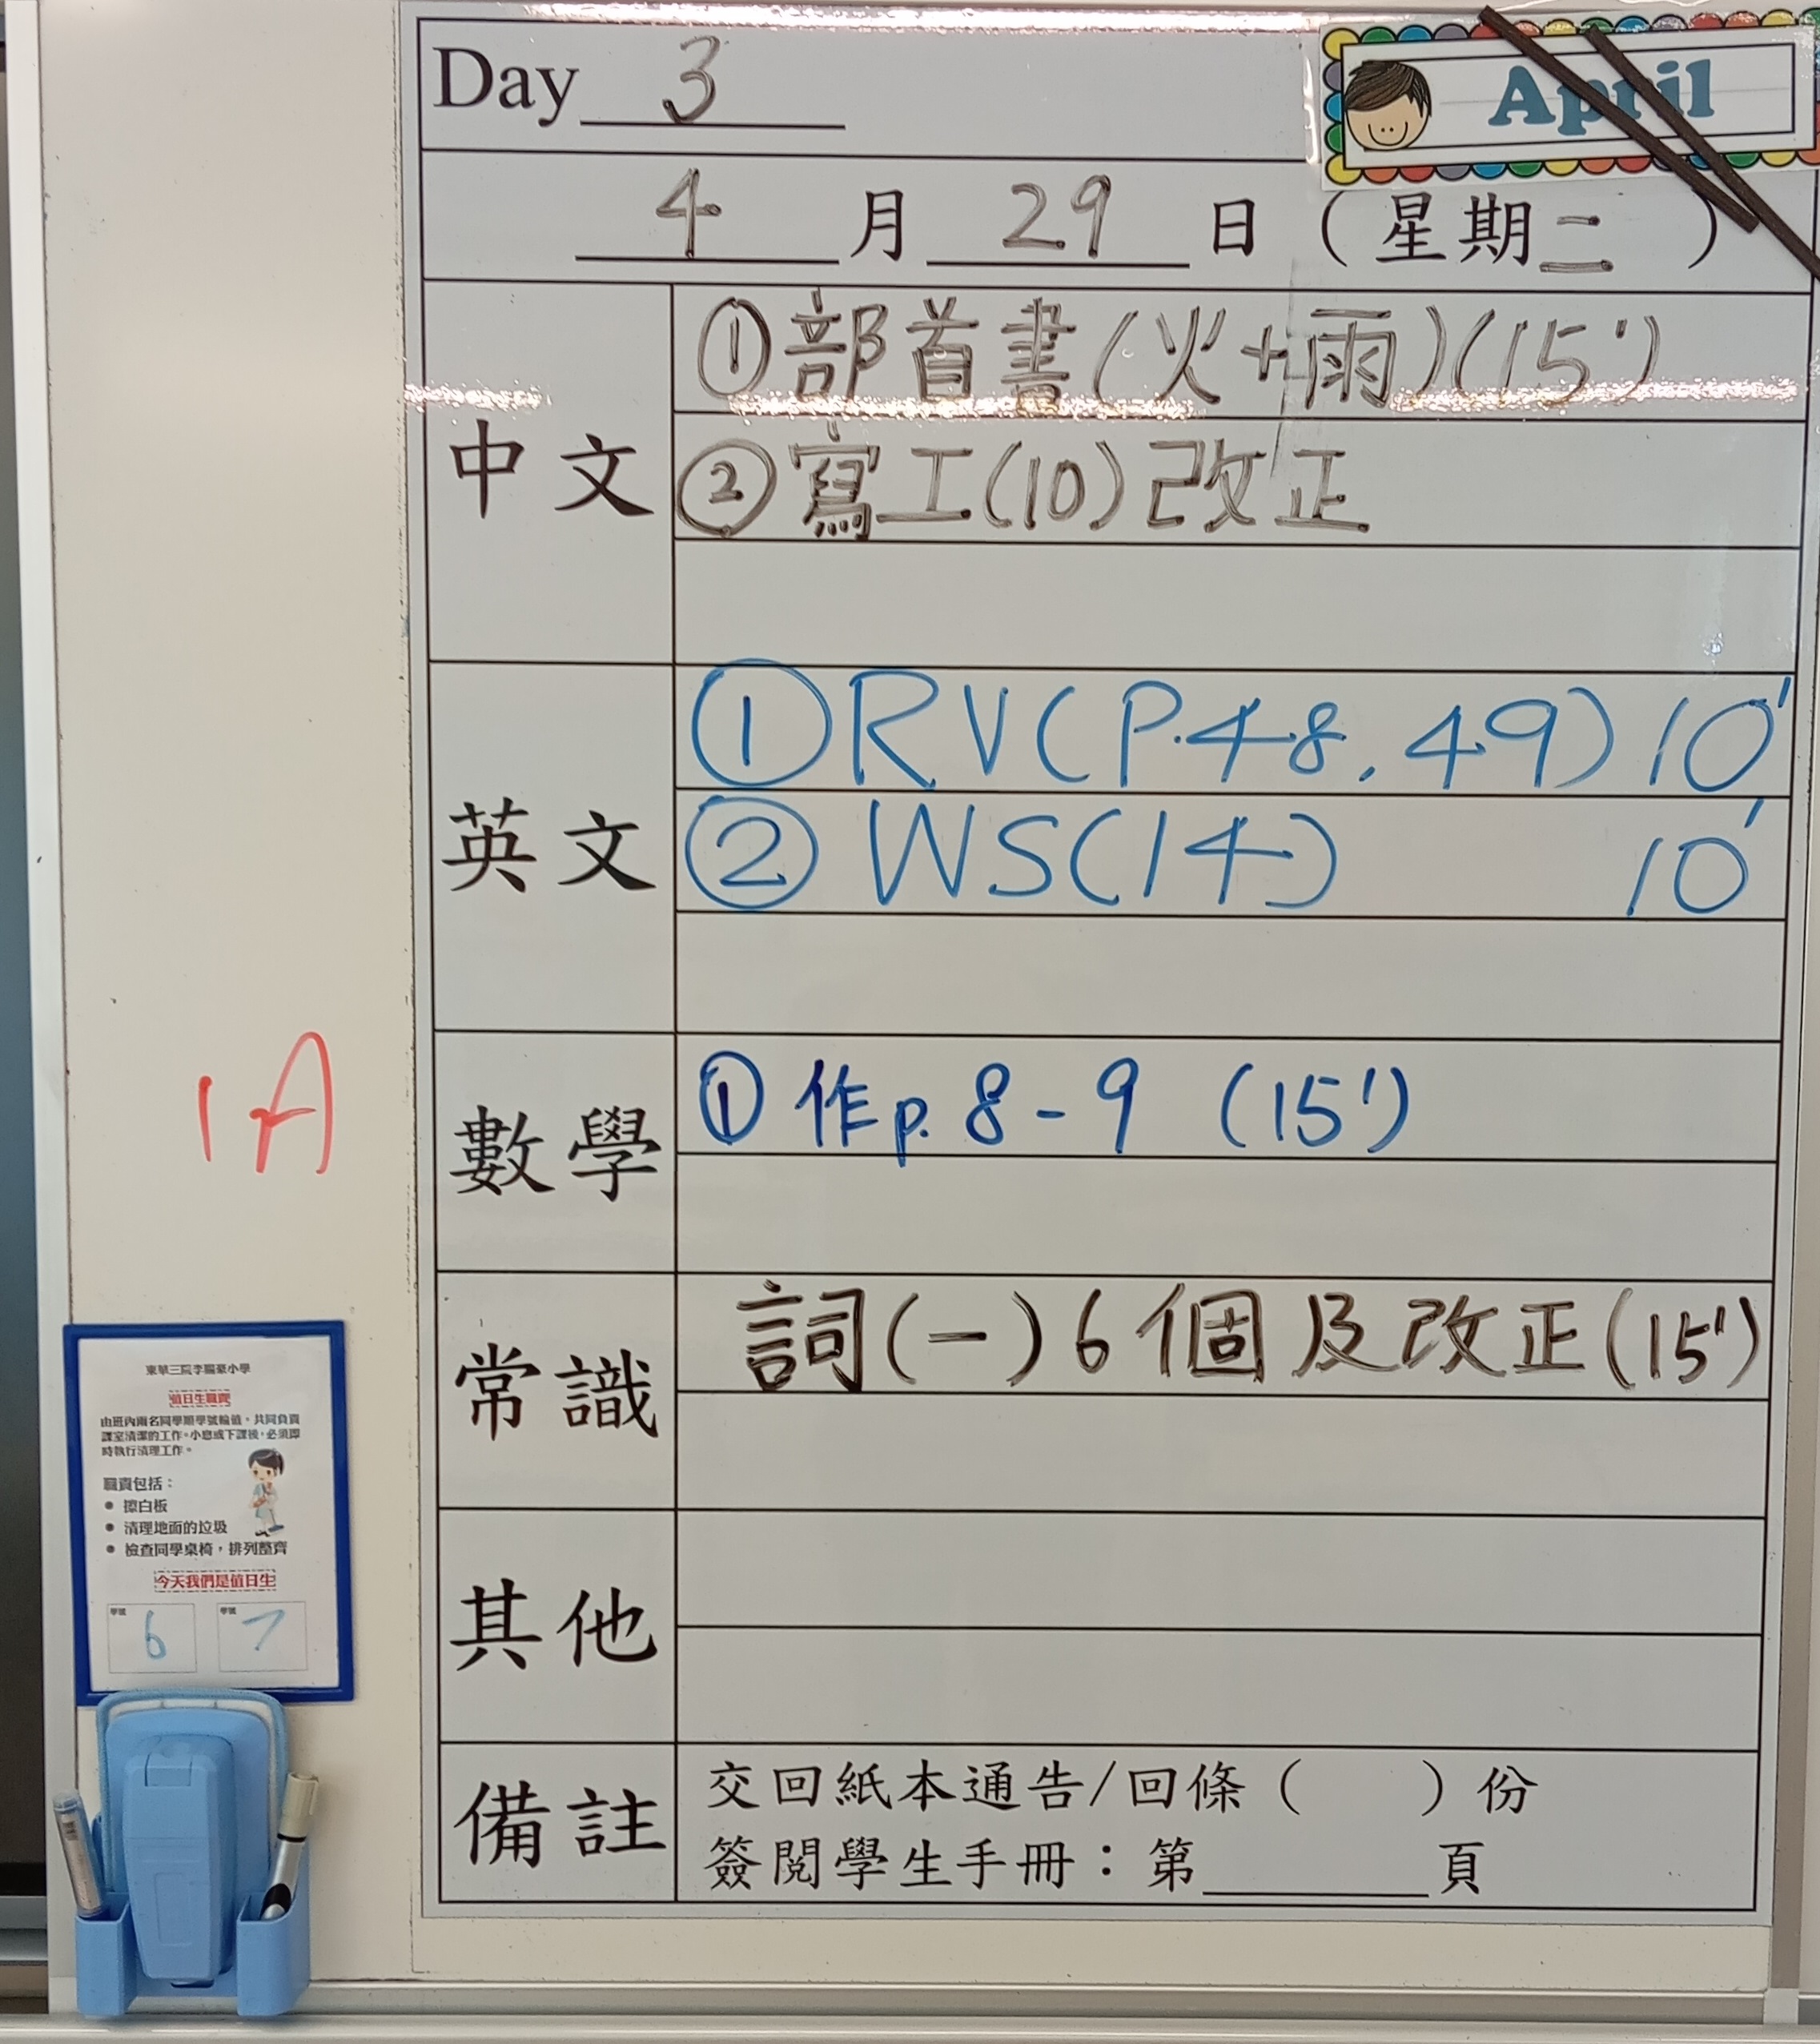 Day 3
April
4 月 29 日 (星期二)
中文
①部首書(火+雨)(15')
②寫工(10)改正
英文
①RV(P.48,49)10'
②WS(14) 10'
數學
①作p.8-9 (15')
常識
詞(一)6個及改正(15')
其他
備註
交回紙本通告/回條( )份
簽閱學生手冊：第______頁
1A
東華三院李賜豪小學
值日生職責
由班內兩名同學順學號輪值，共同負責
課室清潔的工作。小息或下課後，必須即
時執行清理工作。
職責包括：
● 擦白板
● 清理地面的垃圾
● 檢查同學桌椅，排列整齊
今天我們是值日生
學號 6 學號 7